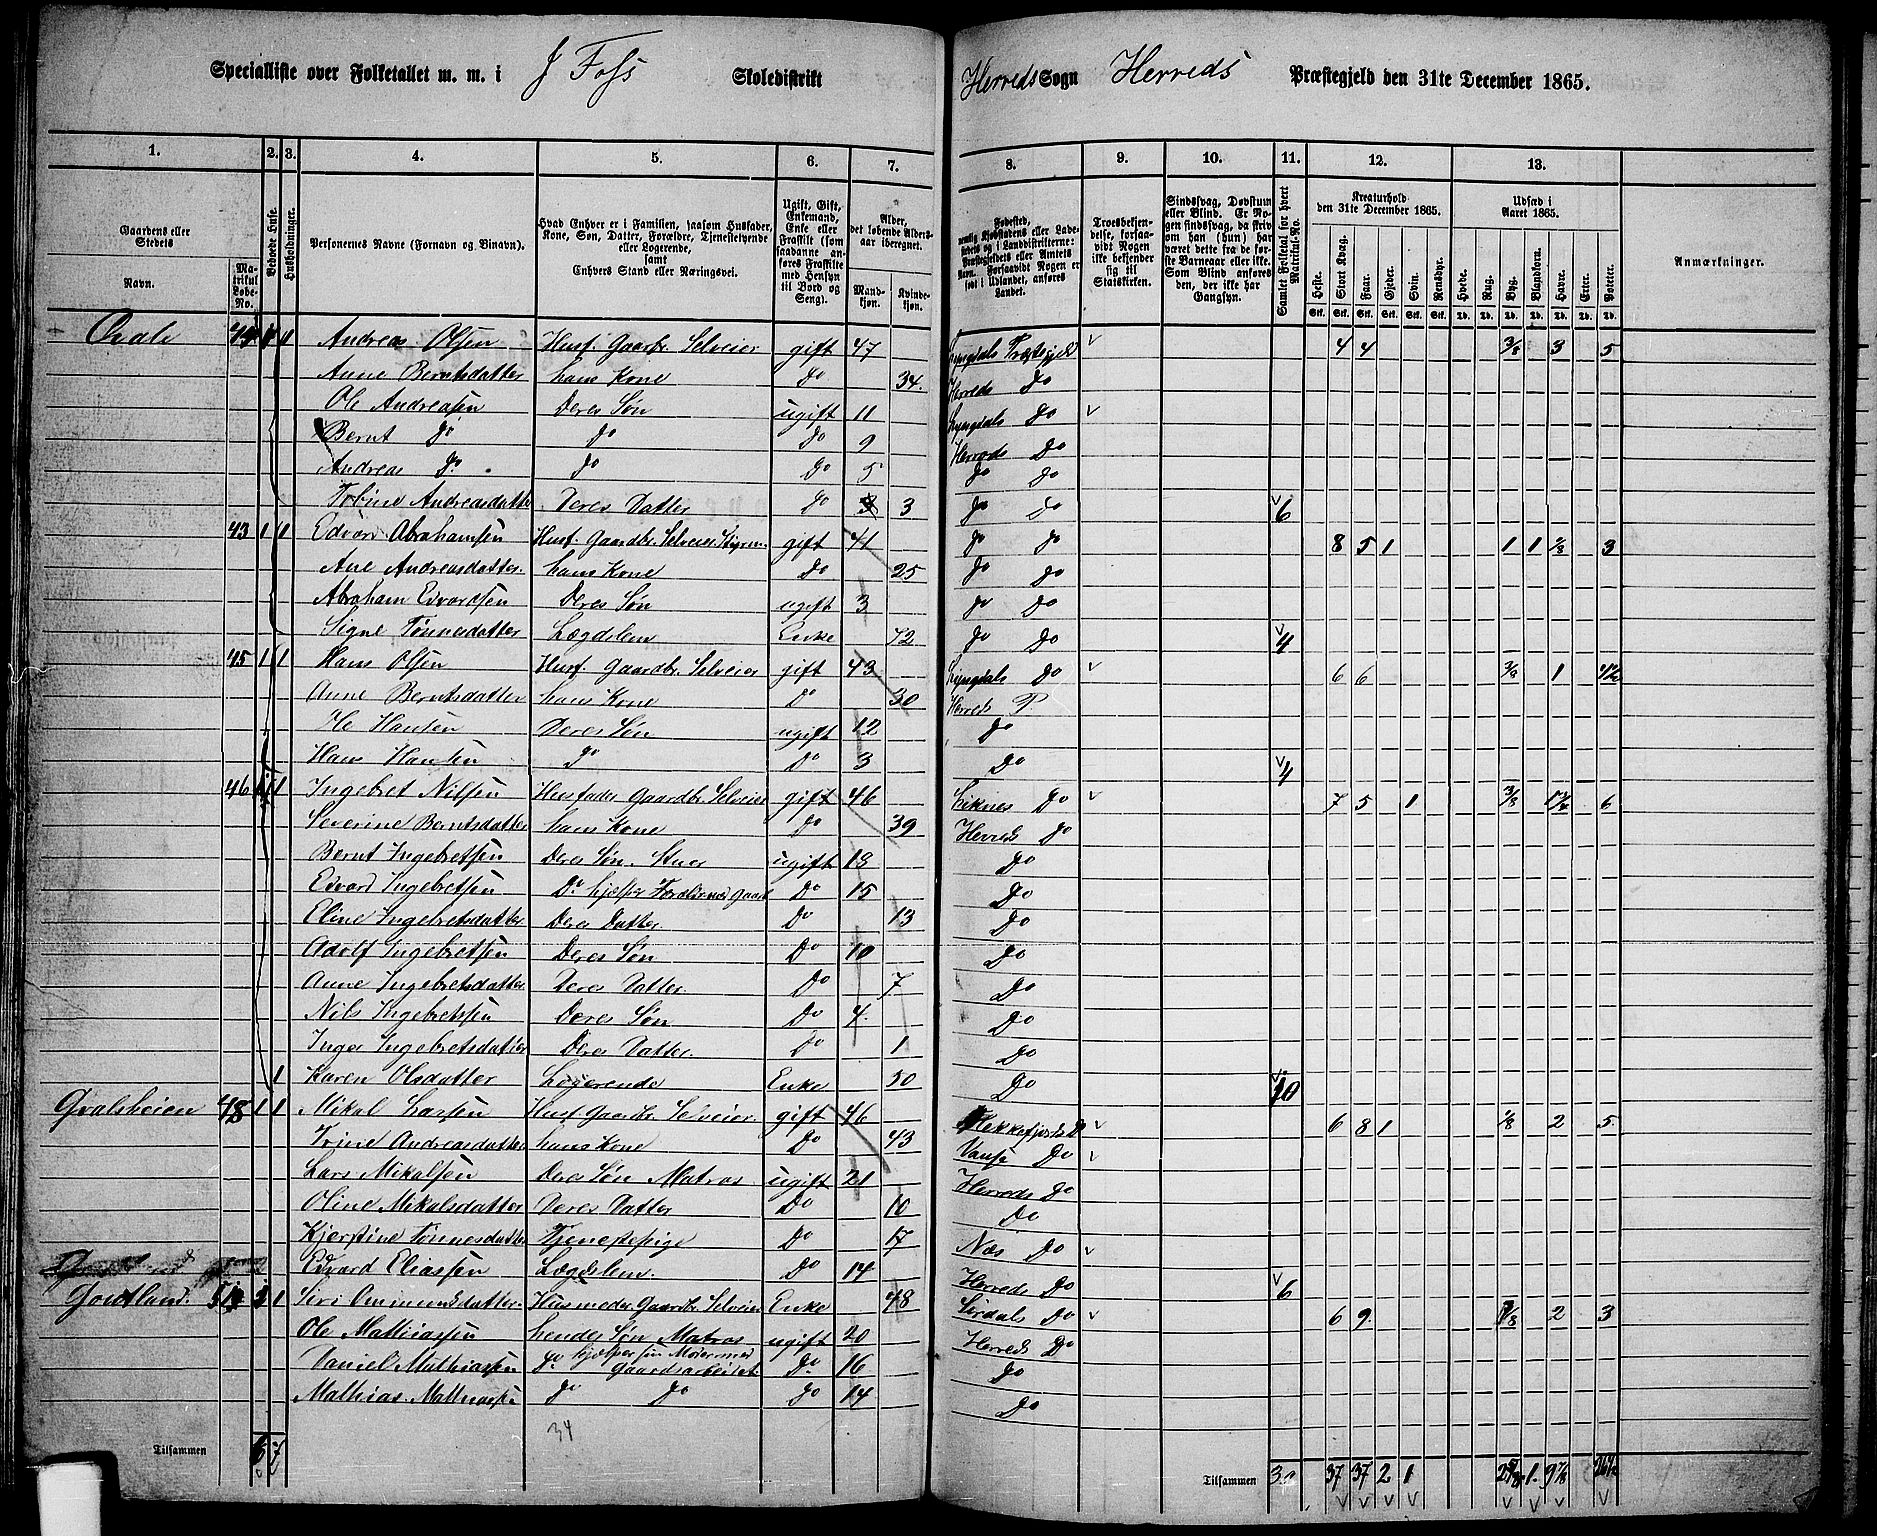 Specialliste over Folketallet m. m. i J Foss Skoledistrikt Herreds Sogn Herreds Præstegjeld den 31te December 1865.
1. 2. 3. 4. 5. 6. 7. 8. 9. 10. 11. 12. 13.
Gaardens eller Stedets
Navn.
Matrikul Løbe-No.
Beboede Huse.
Husholdninger.
Personernes Navne (Fornavn og Binavn).
Hvad Enhver er i Familien, saasom Husfader, Kone, Søn, Datter, Forældre, Tjenestetyende eller Logerende, samt Enhvers Stand eller Næringsvei.
Ugift, Gift, Enkemand, Enke eller Fraskilt (som saadanne anføres Fraskilte med Hensyn til Bord og Seng).
Alder, det løbende Aldersaar iberegnet.
Mandkjøn. Kvindekjøn.
Fødested, nemlig Kjøbstadens eller Ladestedets og i Landdistrikterne: Præstegjeldets eller Amtets Navn. Forsaavidt Nogen er født i Udlandet, anføres Landet.
Troesbekjendelse, forsaavidt Nogen ikke bekjender sig til Statskirken.
Sindssvag, Døvstum eller Blind. Er Nogen sindssvag, da skrives om han (hun) har været dette fra de første Barneaar eller ikke. Som Blind anføres den, der ikke har Gangsyn.
Samlet Folketal for hvert Matrikul-No.
Kreaturhold den 31te December 1865.
Heste. Stort Kvæg. Faar. Gjeder. Svin. Rensdyr.
Udsæd i Aaret 1865.
Hvede. Rug. Byg. Blandkorn. Havre. Erter. Poteter.
Anmærkninger.
Stk. Stk. Stk. Stk. Stk. Stk. Td. Td. Td. Td. Td. Td. Td.
Qvale 44 1 1 Andreas Olsen Husf. Gaardbr. Selveier gift 47 Lyngdals Præstegjeld 4 4 3/8 3 5
Anne Berntsdatter hans Kone Do 34. Herreds Do
Ole Andreasen Deres Søn ugift 11 Lyngdals Do
Bernt Do Do Do 9 Herreds Do
Andreas Do Do Do 5 Do Do
Tobine Andreasdatter Deres Datter Do 3 Do Do 6
43 1 1 Edvard Abrahamsen Husf. Gaardbr. Selveier Styrm. gift 41 Do Do 8 5 1 1 1 1/8 3
Ane Andreasdatter hans Kone Do 25 Do Do
Abraham Edvardsen Deres Søn ugift 3 Do Do
Signe Tønnesdatter Lægdslem Enke 72 Do Do 4
45 1 1 Hans Olsen Husf Gaardbr Selveier gift 43 Lyngdals Do 6 6 3/8 1 4 1/2
Anne Berntsdatter hans Kone Do 30 Herreds P.
Ole Hansen Deres Søn ugift 12 Do
Hans Hansen Do Do 3 Do 4
46 1 1 Ingebret Nilsen Husfader Gaardbr Selveier gift 46 Liknes Do 7 5 1 3/8 6
Severine Berntsdatter hans Kone Do 39 Herreds Do
Bernt Ingebretsen Deres Søn. ugift 18 Do
Edvard Ingebretsen Do hjelper Forældrenes Gaard Do 15 Do
Eline Ingebretsdatter Deres Datter Do 13 Do
Adolf Ingebretsen Deres Søn Do 10 Do
Anne Ingebretsdatter Deres Datter. Do 7 Do
Nils Ingebretsen Deres Søn Do 4 Do
Inger Ingebretsdatter Deres Datter. Do 1 Do
1 Karen Olsdatter Logerende Enke 50 Do 10
Qvalsheien 48 1 1 Mikal Larsen Husf. Gaardbr. Selveier. gift 46 Flekkefjords Do 6 8 1 1/8 2 5
Trine Andreasdatter hans Kone Do 43 Vanse Do
Lars Mikalsen Deres Søn Matros ugift 21 Herreds Do
Oline Mikalsdatter Deres Datter Do 10 Do
Kjerstine Tønnesdatter Tjenestepige Do 17 Næs Do
Edvard Eliassen Lægdslem. Do 14 Herreds Do 6
Jordtland. 1 Siri Ommundsdatter Husmoder Gaardbr Selveier Enke 48 Sirdals Do 6 9 2 3
Ole Mathiassen hendes Søn Matros ugift 20 Herreds Do
Daniel Mathiasen Do hjelper sin Moder med Gaardsarbeidet Do 16 Do
Mathias Mathiassen Do Do Do 14 Do
34
Tilsammen 6 7
Tilsammen 30 37 37 2 1 1 9 7/8 26 1/2